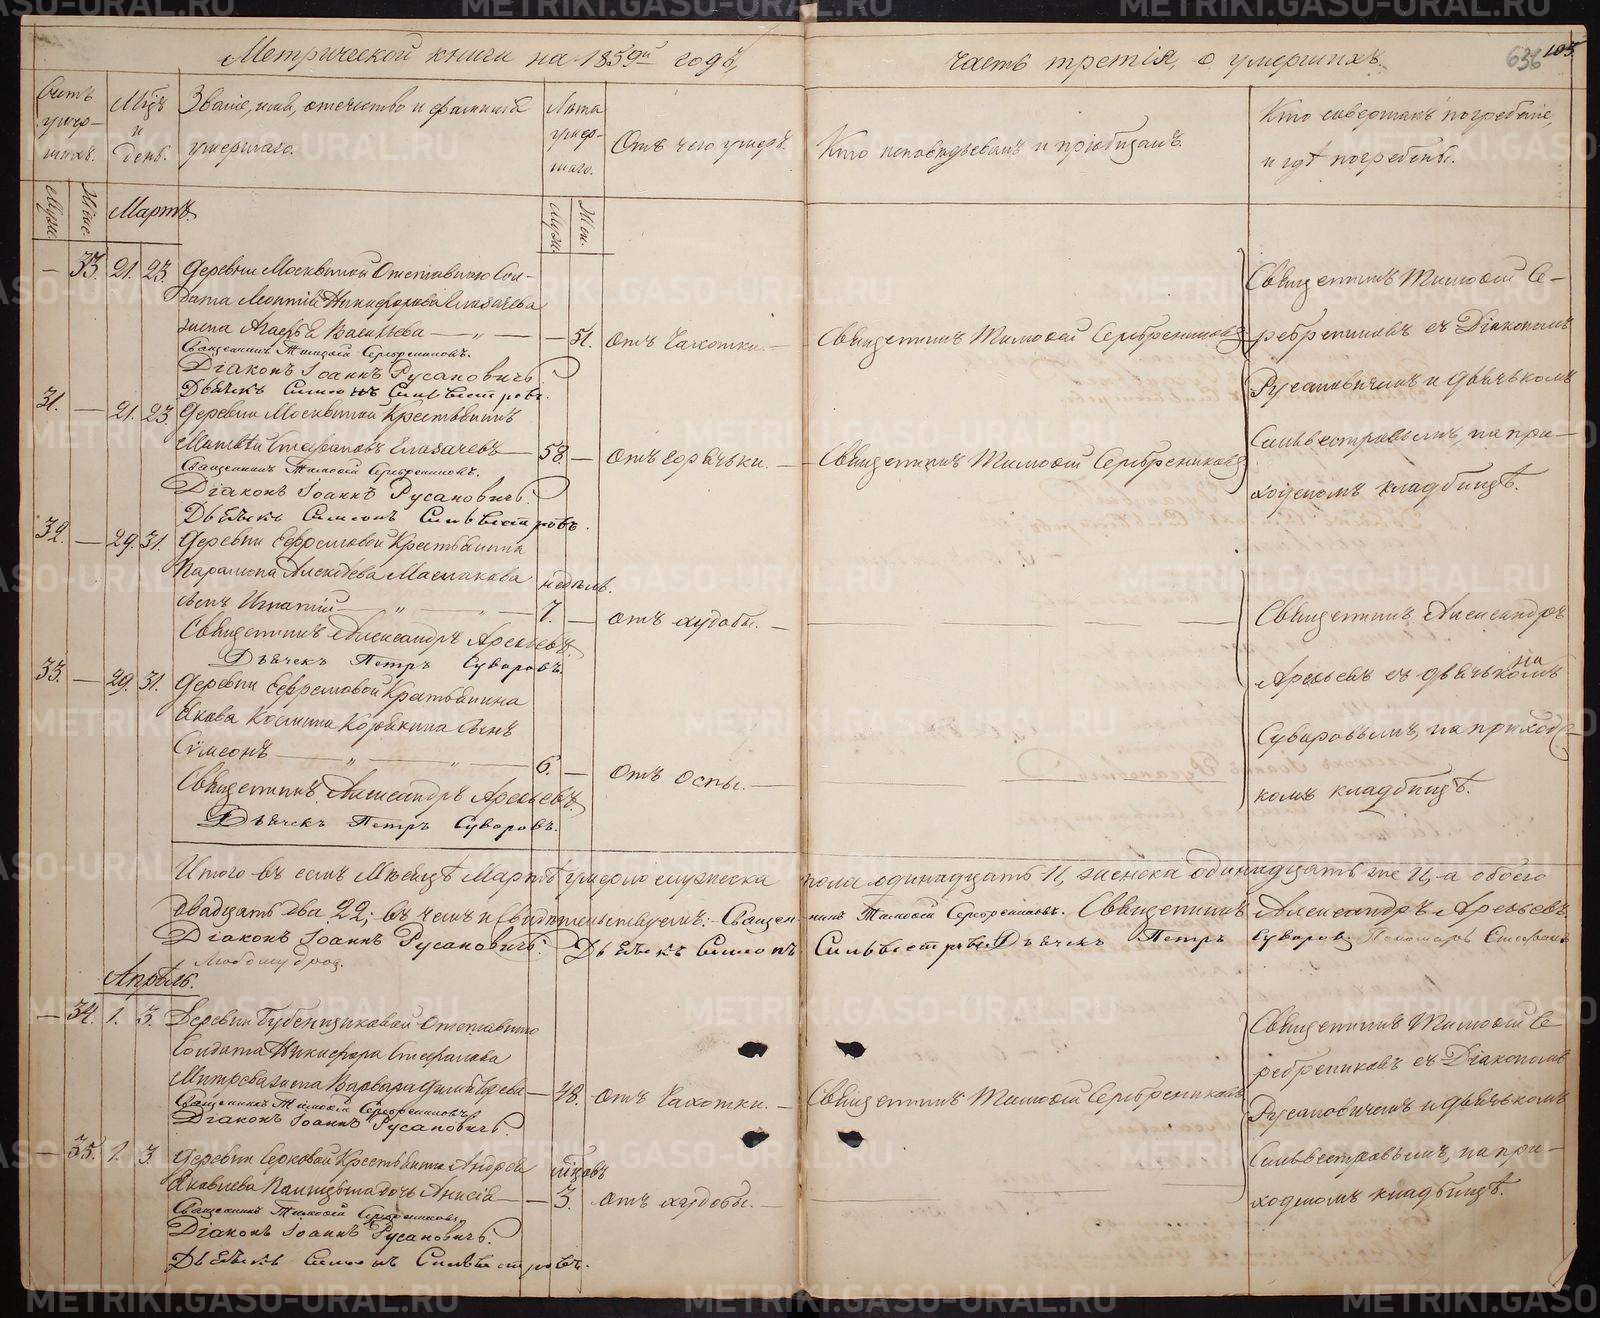 Метрической книги на 1859й годъ,
часть третія, о умершихъ
636 103.
Счетъ умер-шихъ.
Мѣсяцъ и день.
Званіе, имя, отечество и фамилія
умершаго.
Лѣта умер-шаго.
Отъ чего умеръ.
Кто исповѣдывалъ и пріобщалъ.
Кто совершалъ погребеніе,
и гдѣ погребены.
Муж. Жен. Мартъ. Муж. Жен.
— 33. 21. 23. Деревни Москвиной Отставнаго Сол-
дата Леонтія Никифорова
жена Агафья Васильева — „ — — 51. отъ Чахотки. — Священникъ Тимоѳей Серебренниковъ
Священникъ Тимоѳей Серебренниковъ.
Діаконъ Іоаннъ Русановичъ
Дьячекъ Симеонъ Сильвестровъ.
Священникъ Тимоѳей Се-
ребренниковъ съ Діакономъ
Русановичемъ и дьячькомъ
Сильвестровымъ, на при-
ходскомъ кладбищѣ.
31. — 21. 23. Деревни Москвиной Крестьянинъ
Матвѣй Стефановъ — 58. — отъ горячьки. — Священникъ Тимоѳей Серебренниковъ
Священникъ Тимоѳей Серебренниковъ.
Діаконъ Іоаннъ Русановичъ.
Дьячекъ Симеонъ Сильвестровъ.
32. — 29. 31. Деревни Ефремовой Крестьянина
Парамона Алексѣева Маслакова недѣль.
сынъ Игнатій — „ — 7. — отъ худобы. —
Священникъ Александръ Арефьевъ.
Дьячекъ Петръ Суворовъ.
Священникъ Александръ
Арефьевъ съ дьячькомъ
Суворовымъ, на приходс-
комъ кладбищѣ.
33. — 29. 31. Деревни Ефремовой Крестьянина
Якова Козмина Корякина сынъ
Симеонъ — „ — „ — 6. — отъ оспы. —
Священникъ Александръ Арефьевъ
Дьячекъ Петръ Суворовъ.
Итого въ семъ Мѣсяцѣ Мартѣ умерло мужеска пола одинадцать 11, женска одинадцать же 11, а обоего
двадцать два 22; въ чемъ и свидѣтельствуемъ: Священникъ Тимоѳей Серебренниковъ. Священникъ Александръ Арефьевъ
Діаконъ Іоаннъ Русановичъ. Дьячекъ Симеонъ Сильвестровъ Дьячекъ Петръ Суворовъ. Пономарь Стефанъ
Любомудровъ.
Апрѣль.
— 34. 1. 3. Деревни Бубенщиковой Отставнаго
Солдата Никифора Стефанова
жена Варвара — 48. отъ Чахотки. — Священникъ Тимоѳей Серебренниковъ
Священникъ Тимоѳей Серебренниковъ
Діаконъ Іоаннъ Русановичъ.
Священникъ Тимоѳей Се
ребренниковъ съ Діакономъ
Русановичемъ и дьячькомъ
Сильвестровымъ, на при-
ходскомъ кладбищѣ.
— 35. 1. 3. Деревни Серковой Крестьянина Андрея
Яковлева дочь Анисія — — 3. отъ худобы. —
Священникъ Тимоѳей Серебренниковъ
Діаконъ Іоаннъ Русановичъ.
Дьячекъ Симеонъ Сильвестровъ.
METRIKI.GASO-URAL.RU